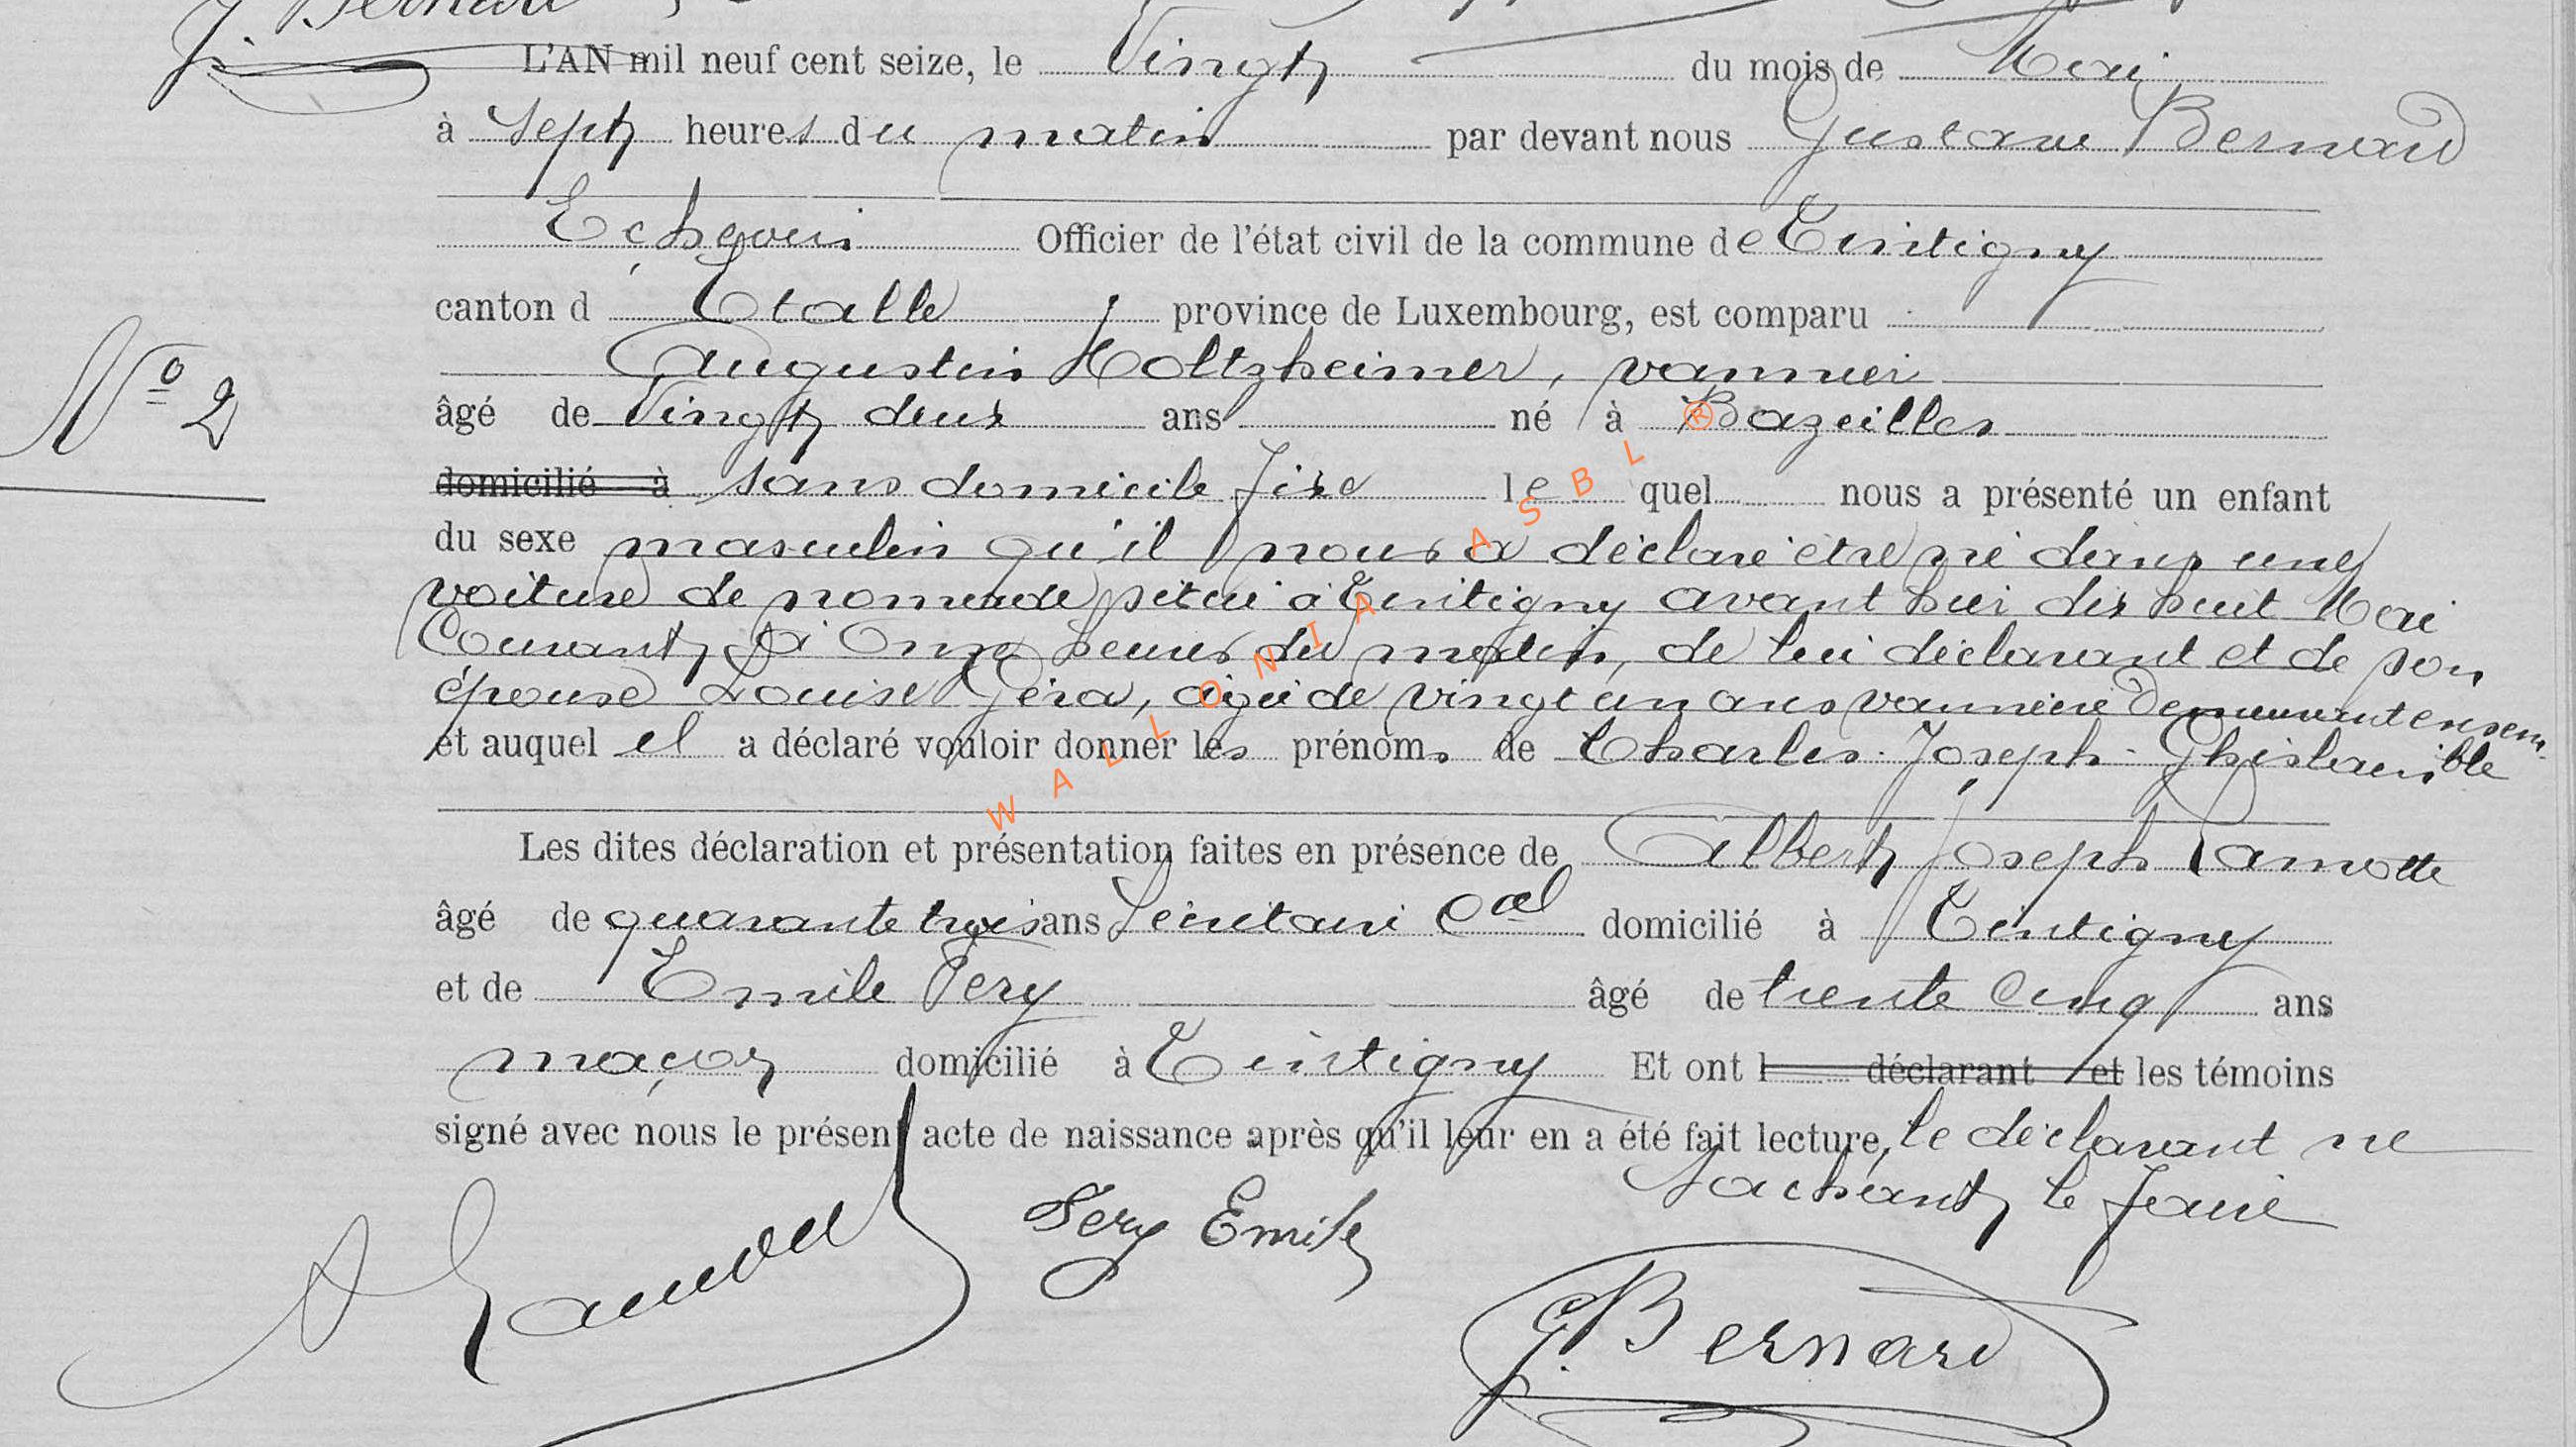 J. Bernard
L'AN mil neuf cent seize, le Vingt du mois de Mai
à Sept heures du matin par devant nous Gustave Bernard
Echevin Officier de l'état civil de la commune de Tintigny
canton d Etalle, province de Luxembourg, est comparu
Augustin Holtzheimer, vannier
N° 2
âgé de Vingt deux ans né à Bazeilles
domicilié à sans domicile fixe lequel nous a présenté un enfant
du sexe masculin qu'il nous a déclaré être né dans une
voiture de nomade située à Tintigny avant hier dix huit Mai
Courant, à Onze heures du matin, de lui déclarant et de son
épouse Louise Géra, agée de vingt un ans vannière Demeurant ensem-
ble
et auquel il a déclaré vouloir donner les prénoms de Charles-Joseph-Ghislain
Les dites déclaration et présentation faites en présence de Albert Joseph Lamotte
âgé de quarante trois ans Secrétaire Cal domicilié à Tintigny
et de Emile Féry âgé de trente Cinq ans
maçon domicilié à Tintigny Et ont l déclarant et les témoins
signé avec nous le présent acte de naissance après qu'il leur en a été fait lecture, le déclarant ne
sachant le faire
Fery Emile
G. Bernard
WALLONIA ASBL ®